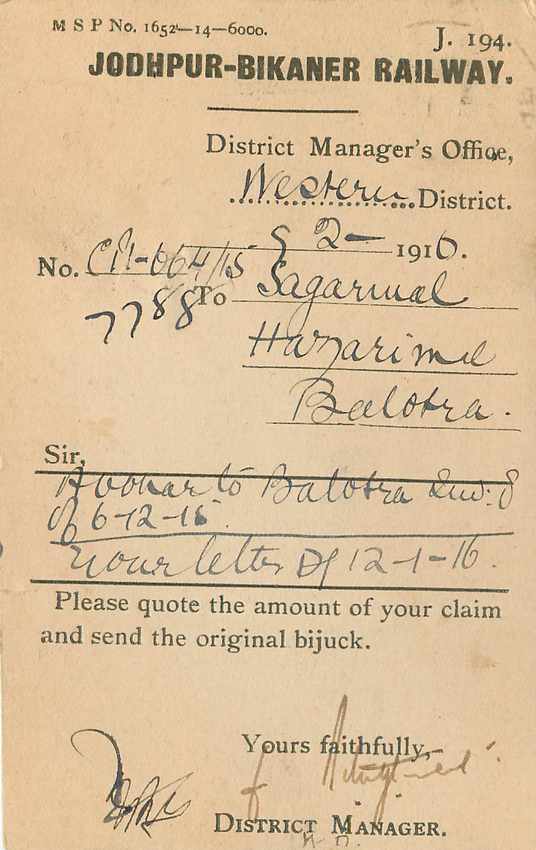 M S P No. 1652—14—6000.
J. 194.
JODHPUR-BIKANER RAILWAY.
District Manager's Office,
Western District.
9 2 — 1916.
No. 064/15
7788
To Sagarmal
Hazarimal
Balotra.
Sir,
to Balotra Inv: 8
of 6-12-15.
Your letter Df 12-1-16.
Please quote the amount of your claim
and send the original bijuck.
Yours faithfully,
f
DISTRICT MANAGER.